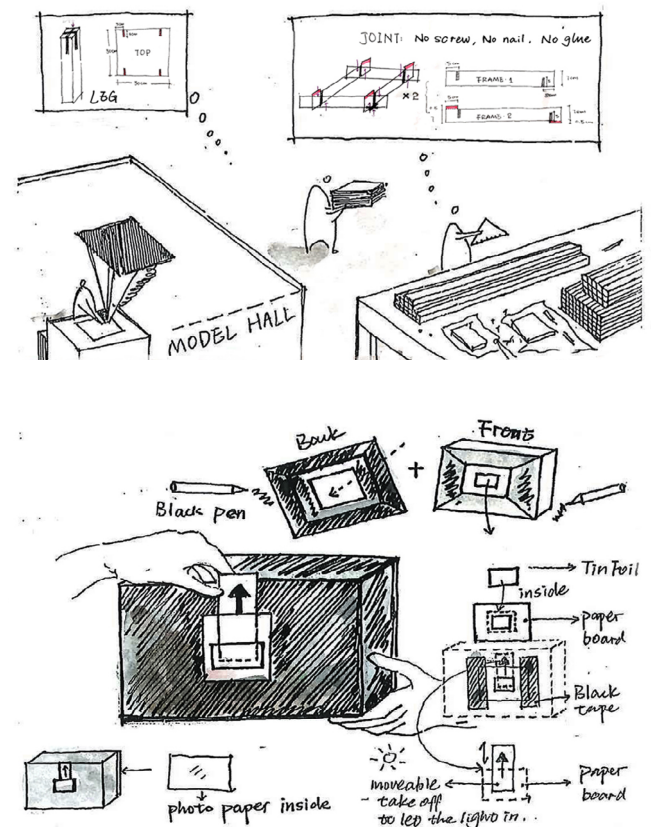 LEG
TOP
50cm
JOINT: No screw, No nail. No glue
× 2
FRAME·1
FRAME·2
MODEL HALL
Back
+
Front
Black pen
Tin Foil
inside
paper
board
Black
tape
photo paper inside
moveable
take off
to let the light in..
paper
board